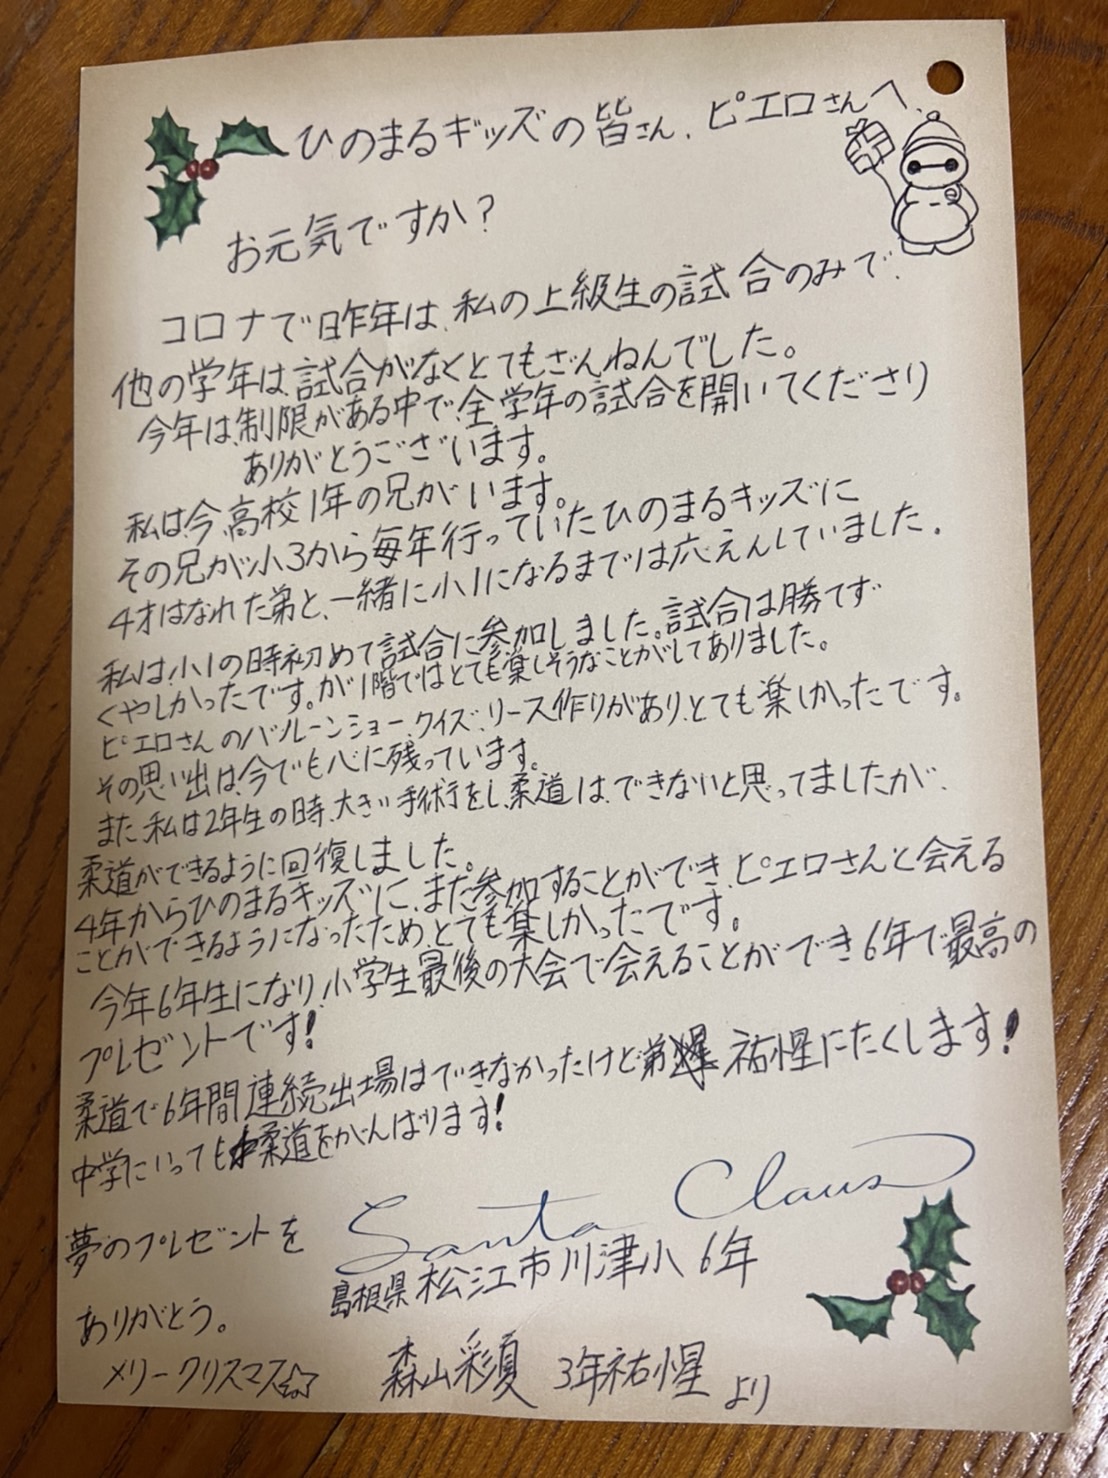 ひのまるキッズの皆さん、ピエロさんへ、
お元気ですか?
コロナで昨年は、私の上級生の試合のみで、
他の学年は、試合がなくとてもざんねんでした。
今年は、制限がある中で、全学年の試合を開いてくださり
ありがとうございます。
私は、今、高校1年の兄がいます。
その兄が小3から毎年行っていたひのまるキッズに
4才はなれた弟と、一緒に小1になるまでは応えんしていました。
私は、小1の時初めて試合に参加しました。試合は勝てず
くやしかったです。が1階ではとても楽しそうなことがしてありました。
ピエロさんのバルーンショー、クイズ、リース作りがあり、とても楽しかったです。
その思い出は、今でも心に残っています。
また、私は2年生の時、大きい手術をし、柔道は、できないと思ってましたが、
柔道ができるように回復しました。
4年からひのまるキッズに、また参加することができ、ピエロさんと会える
ことができるようになったため、とても楽しかったです。
今年6年生になり、小学生最後の大会で会えることができ6年で最高の
プレゼントです!
柔道で6年間連続出場はできなかったけど弟 祐惺にたくします!
中学にいっても柔道をがんばります!
Santa Claus
夢のプレゼントを
島根県松江市川津小6年
ありがとう。
メリークリスマス☆
森山彩夏 3年祐惺より